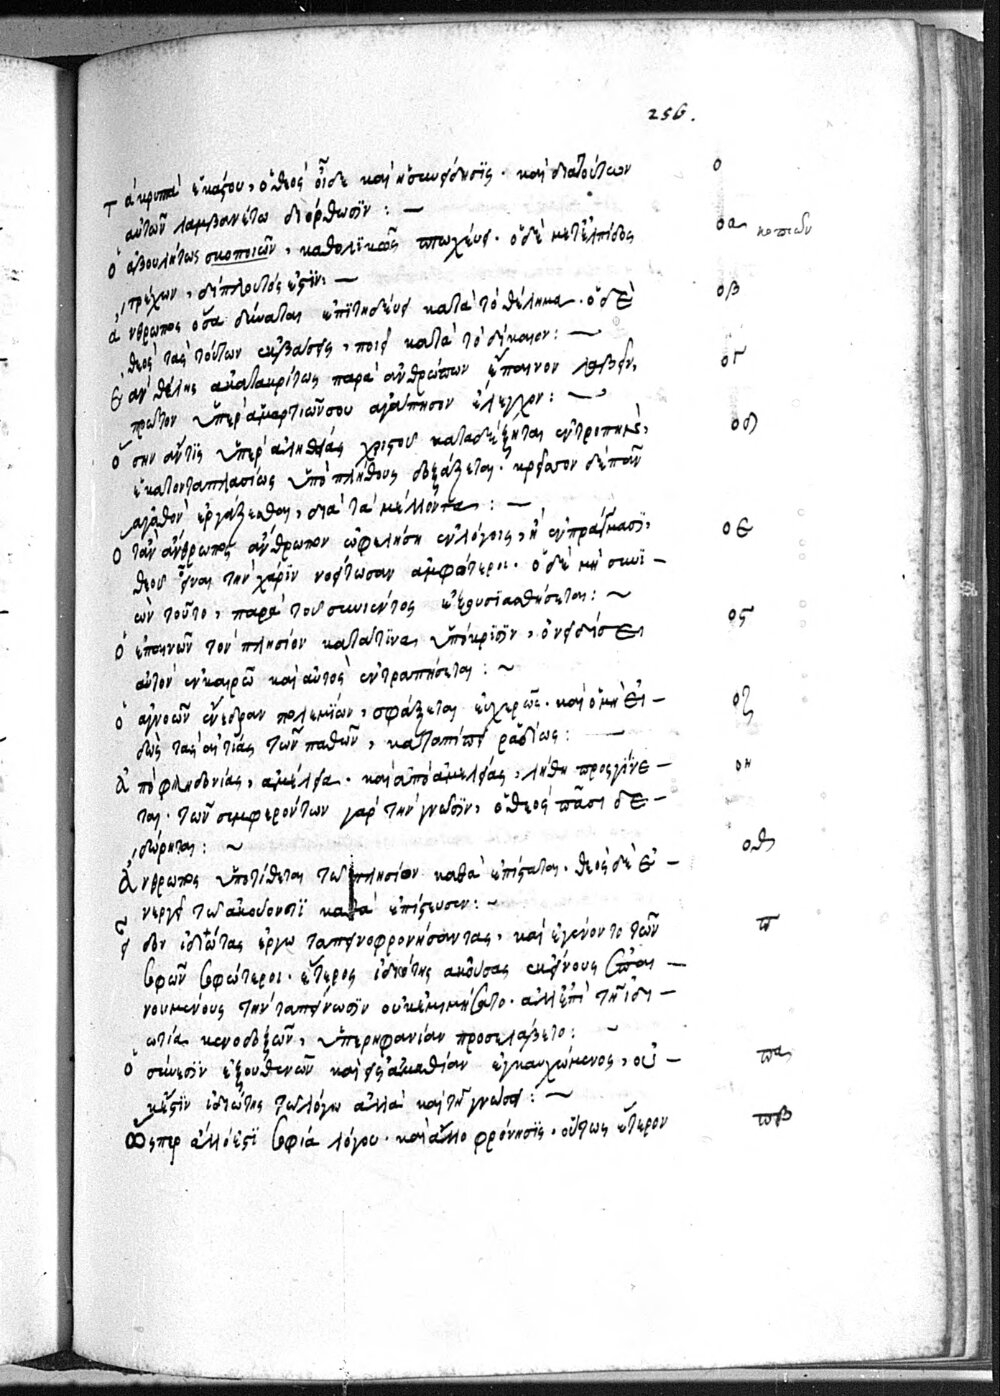 256.
Τὰ κρυπτὰ ἑκάστου, ὁ θεὸς οἶδε καὶ ἡ συνείδησις· καὶ διὰ τούτων ο
αὐτῶν λαμβανέτω διόρθωσιν : —
ὁ ἀβουλήτως σκοποιῶν, καθολικῶς πτωχεύει· ὁ δὲ μετ' ἐλπίδος οα κοπιῶν
τρέχων, διπλουτός ἐστιν : —
ἄνθρωπος ὅσα δύναται ἐπιτηδεύει κατὰ τὸ θέλημα· ὁ δὲ οβ
θεὸς τὰς τούτων ἐκβάσεις, ποιεῖ κατὰ τὸ δίκαιον : —
ἐὰν θέλῃς ἀκατακρίτως παρὰ ἀνθρώπων ἔπαινον λαβεῖν, ογ
πρῶτον ὑπὲρ ἁμαρτιῶν σου ἀγάπησον ἔλεγχον : —
ὅσην ἄν τις ὑπὲρ ἀληθείας χριστοῦ καταδέξηται ἐντροπὴν, οδ
ἑκατονταπλασίως ὑπὸ πλήθους δοξάζεται· κρεῖσσον δὲ πᾶν
ἀγαθὸν ἐργάζεσθαι, διὰ τὰ μέλλοντα : —
ὅταν ἄνθρωπος ἄνθρωπον ὠφελήσῃ ἐν λόγοις, ἢ ἐν πράγμασιν, οε
θεοῦ εἶναι τὴν χάριν νοείτωσαν ἀμφότεροι· ὁ δὲ μὴ συνι–
ὼν τοῦτο, παρὰ τοῦ συνιέντος ἐξουσιασθήσεται : ~
ὁ ἐπαινῶν τὸν πλησίον κατά τινα ὑπόκρισιν, ὀνειδίσει ος
αὐτὸν ἐν καιρῷ καὶ αὐτὸς ἐντραπήσεται : ~
ὁ ἀγνοῶν ἔνεδραν πολεμίων, σφάζεται εὐχερῶς· καὶ ὁ μὴ εἰ– οζ
δὼς τὰς αἰτίας τῶν παθῶν, καταπίπτει ῥαδίως : —
ἀπὸ φιληδονίας, ἀμέλεια· καὶ ἀπὸ ἀμελείας, λήθη προσγίνε– οη
ται· τῶν συμφερόντων γὰρ τὴν γνῶσιν, ὁ θεὸς πᾶσι δε–
δώρηται : ~
ἄνθρωπος ὑποτίθεται τῷ πλησίον καθὰ ἐπίσταται· θεὸς δὲ ἐ– οθ
νεργεῖ τῷ ἀκούοντι καθὰ ἐπίστευσεν : ~
εἶδον ἰδιώτας ἔργῳ ταπεινοφρονήσαντας, καὶ ἐγένοντο τῶν π
σοφῶν σοφώτεροι· ἕτερος ἰδιώτης ἀκούσας ἐκείνους ἐπαι–
νουμένους τὴν ταπείνωσιν οὐκ ἐμιμήσατο· ἀλλ' ἐπὶ τῇ ἰδι–
ωτίᾳ κενοδοξῶν, ὑπερηφανίαν προσελάβετο : ~
ὁ σύνεσιν ἐξουθενῶν καὶ εἰς ἀμαθίαν ἐγκαυχώμενος, οὐ– πα
κ ἔστιν ἰδιώτης τῷ λόγῳ ἀλλὰ καὶ τῇ γνώσει : —
Ὥσπερ ἄλλό ἐστι σοφία λόγου· καὶ ἄλλο φρόνησις· οὕτως ἕτερον πβ